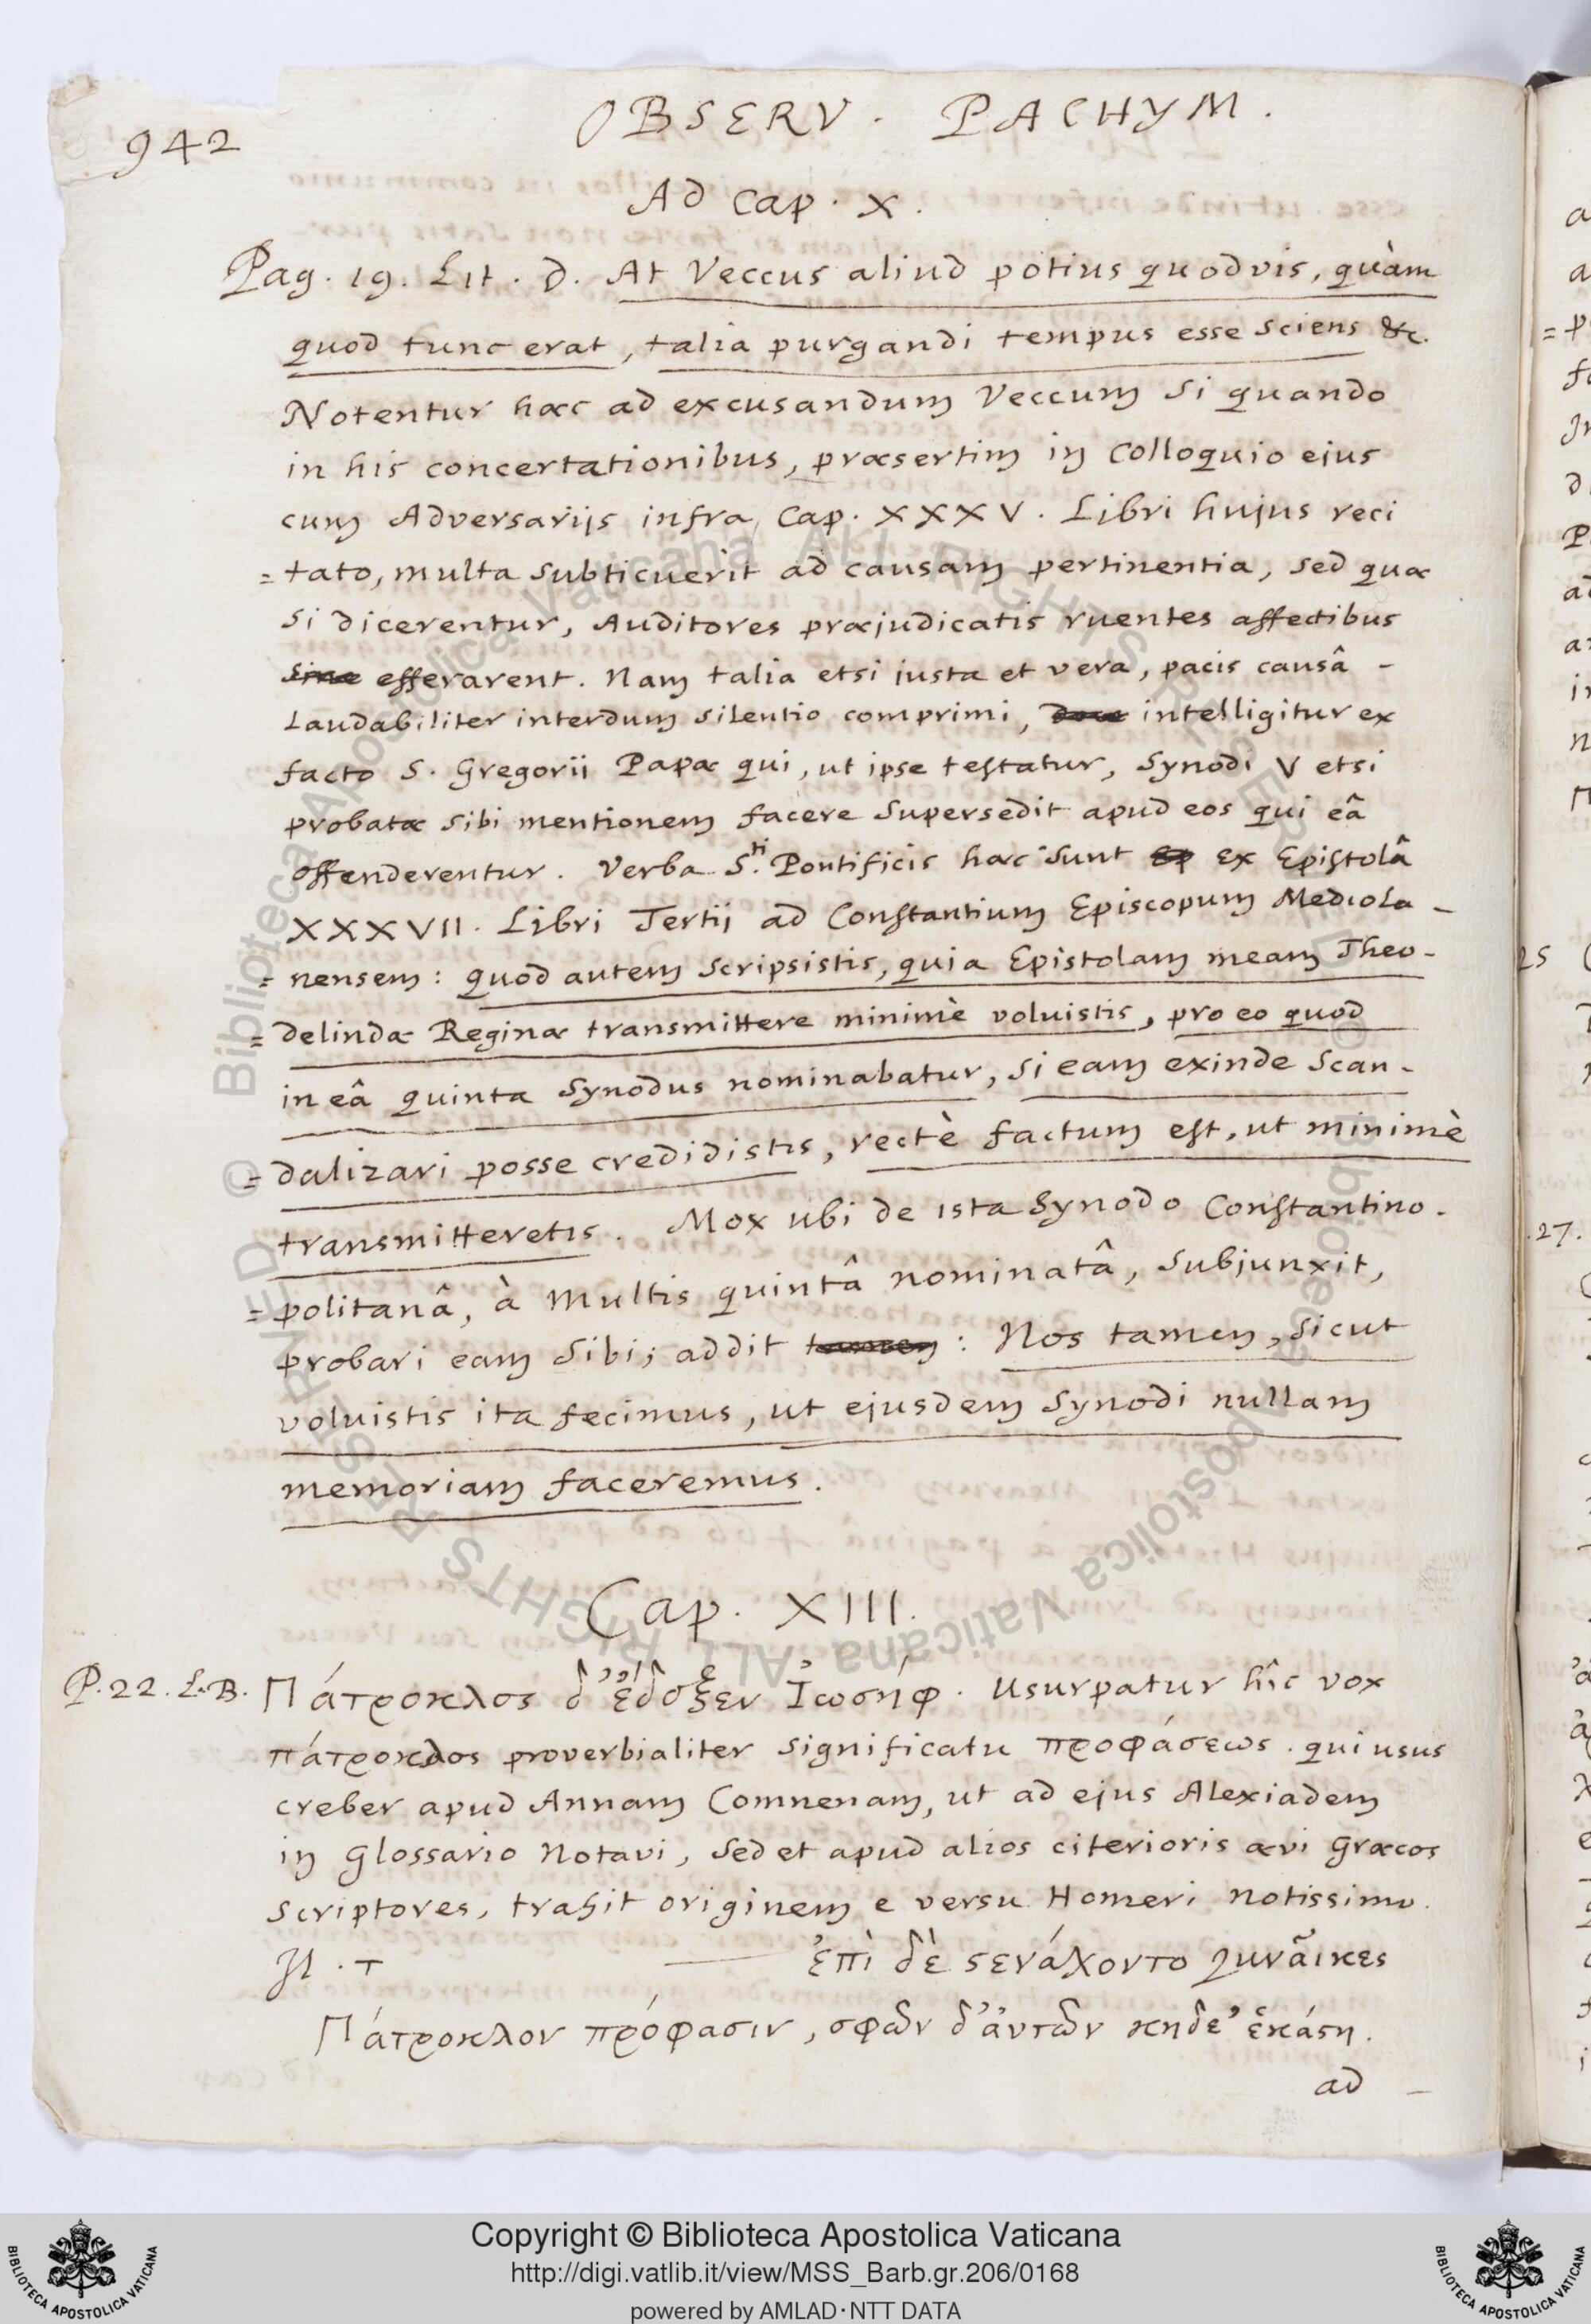 942
OBSERV. PACHYM.
Ad Cap. X.
Pag. 19. Lit. D. At Veccus aliud potius quodvis, quàm
quod tunc erat, talia purgandi tempus esse sciens &c.
Notentur hæc ad excusandum Veccum si quando
in his concertationibus, præsertim in Colloquio ejus
cum Adversarijs infra Cap. XXXV. Libri hujus reci
=tato, multa subticuerit ad causam pertinentia, sed quæ
si dicerentur, Auditores præjudicatis ruentes affectibus
efferarent. Nam talia etsi justa et vera, pacis causâ -
laudabiliter interdum silentio comprimi, intelligitur ex
facto S. Gregorii Papæ qui, ut ipse testatur, Synodi V etsi
probatæ sibi mentionem facere supersedit apud eos qui eâ
offenderentur. Verba S.ti Pontificis hæc sunt ex Epistolâ
XXXVII. Libri Tertij ad Constantium Episcopum Mediola-
=nensem: quod autem scripsistis, quia Epistolam meam Theo-
=delindæ Reginæ transmittere minimè voluistis, pro eo quod
in eâ quinta Synodus nominabatur, si eam exinde scan-
=dalizari posse credidistis, rectè factum est, ut minimè
transmitteretis. Mox ubi de ista Synodo Constantino-
=politanâ, à multis quintâ nominatâ, subjunxit,
probari eam sibi; addit tamen: Nos tamen, sicut
voluistis ita fecimus, ut ejusdem Synodi nullam
memoriam faceremus.
Cap. XIII.
P. 22. L. B. Πάτροκλος δ' ἔδοξεν Ἰωσήφ. Usurpatur hîc vox
πάτροκλος proverbialiter significatu προφάσεως. qui usus
creber apud Annam Comnenam, ut ad ejus Alexiadem
in Glossario Notavi, sed et apud alios citerioris ævi Græcos
scriptores, trahit originem e versu Homeri notissimo.
Il. τ — ἐπὶ δὲ ϛενάχοντο γυναῖκες
Πάτροκλον πρόφασιν, σφῶν δ' ἀυτῶν κηδε' ἑκάϛη.
ad -
25
27.
© Biblioteca Apostolica Vaticana ALL RIGHTS RESERVED
© Biblioteca Apostolica Vaticana ALL RIGHTS RESERVED
Copyright © Biblioteca Apostolica Vaticana
http://digi.vatlib.it/view/MSS_Barb.gr.206/0168
powered by AMLAD·NTT DATA
BIBLIOTECA APOSTOLICA VATICANA
BIBLIOTECA APOSTOLICA VATICANA